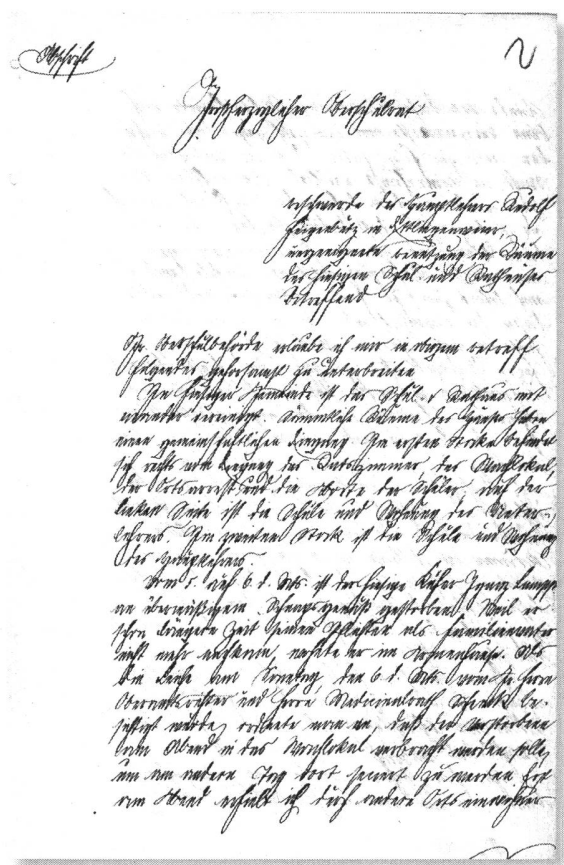 Abschrift
2
Großherzoglicher Oberschulrat
Beschwerde des Hauptlehrers Rudolf
in Ettlingenweier,
Benützung der Räume
des hiesigen Schul- und Rathauses
betreffend
Gr. Oberschulbehörde erlaube ich mir in obigem Betreff
Folgendes gehorsamst zu unterbreiten
In hiesiger Gemeinde ist das Schul- & Rathaus mit
einander vereinigt. Sämmtliche Räume des Hauses haben
einen gemeinschaftlichen Eingang. Im ersten Stocke befindet
sich rechts vom Eingang das Ratszimmer, das Wachlokal,
der Ortsarrest und die Aborte der Schüler, auf der
linken Seite ist die Schule und Wohnung des Unter-
lehrers. Im zweiten Stock ist die Schule und Wohnung
des Hauptlehrers.
Vom 5. auf 6. d. Mts. ist der hiesige Küfer Ignaz
an übermäßigem Schnapsgenuß gestorben. Weil er
schon längere Zeit seinen Pflichten als Familienvater
nicht mehr nachkam, wohnte er im Armenhause. Als
die Leiche am Sonntag, den 6. d. Mts. vom Gr. Herrn
Oberamtsrichter und Herrn Medicinalrath be-
sichtigt wurde, ordnete man an, daß der Verstorbene
am Abend in das Wachlokal verbracht werden solle,
um am andern Tag dort seciert zu werden. Erst
am Abend erhielt ich durch andere Ortseinwohner